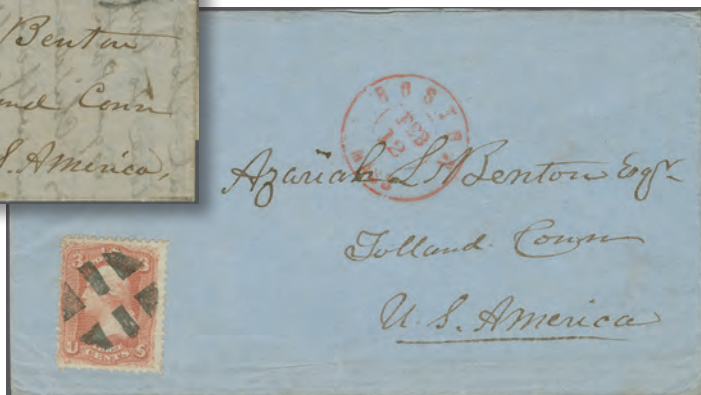 Benton
Conn
S. America,
BOSTON
FEB
12
Azariah L. Benton Esqr
Tolland Conn
U. S. America
3 3
U CENTS S